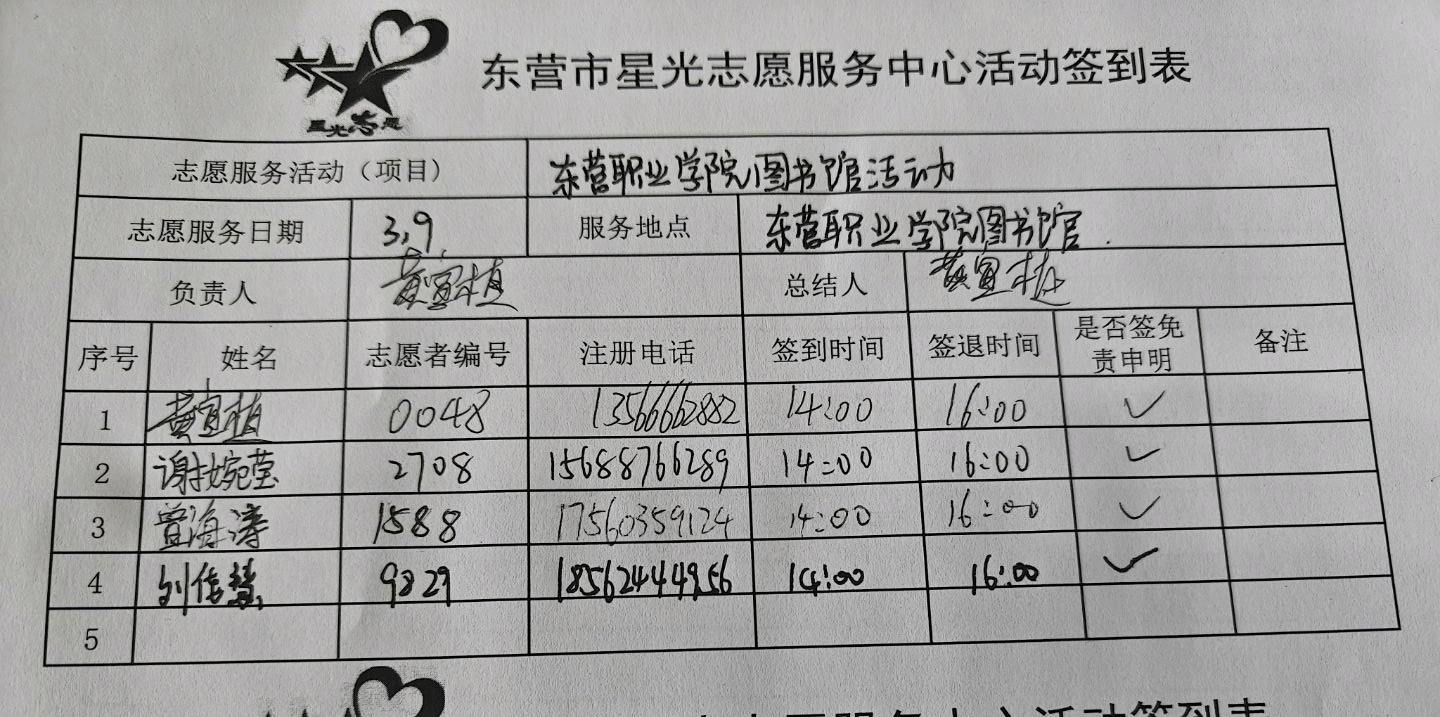 星光志愿
东营市星光志愿服务中心活动签到表
志愿服务活动（项目） 东营职业学院图书馆活动
志愿服务日期 3.9 服务地点 东营职业学院图书馆.
负责人 黄宜植 总结人 黄宜植
序号 姓名 志愿者编号 注册电话 签到时间 签退时间 是否签免责申明 备注
1 黄宜植 0048 13566662882 14:00 16:00 ✓
2 谢婉莹 2708 15688766289 14:00 16:00 ✓
3 曾海涛 1588 17560359124 14:00 16:00 ✓
4 刘信慧 9829 18562444956 14:00 16:00 ✓
5